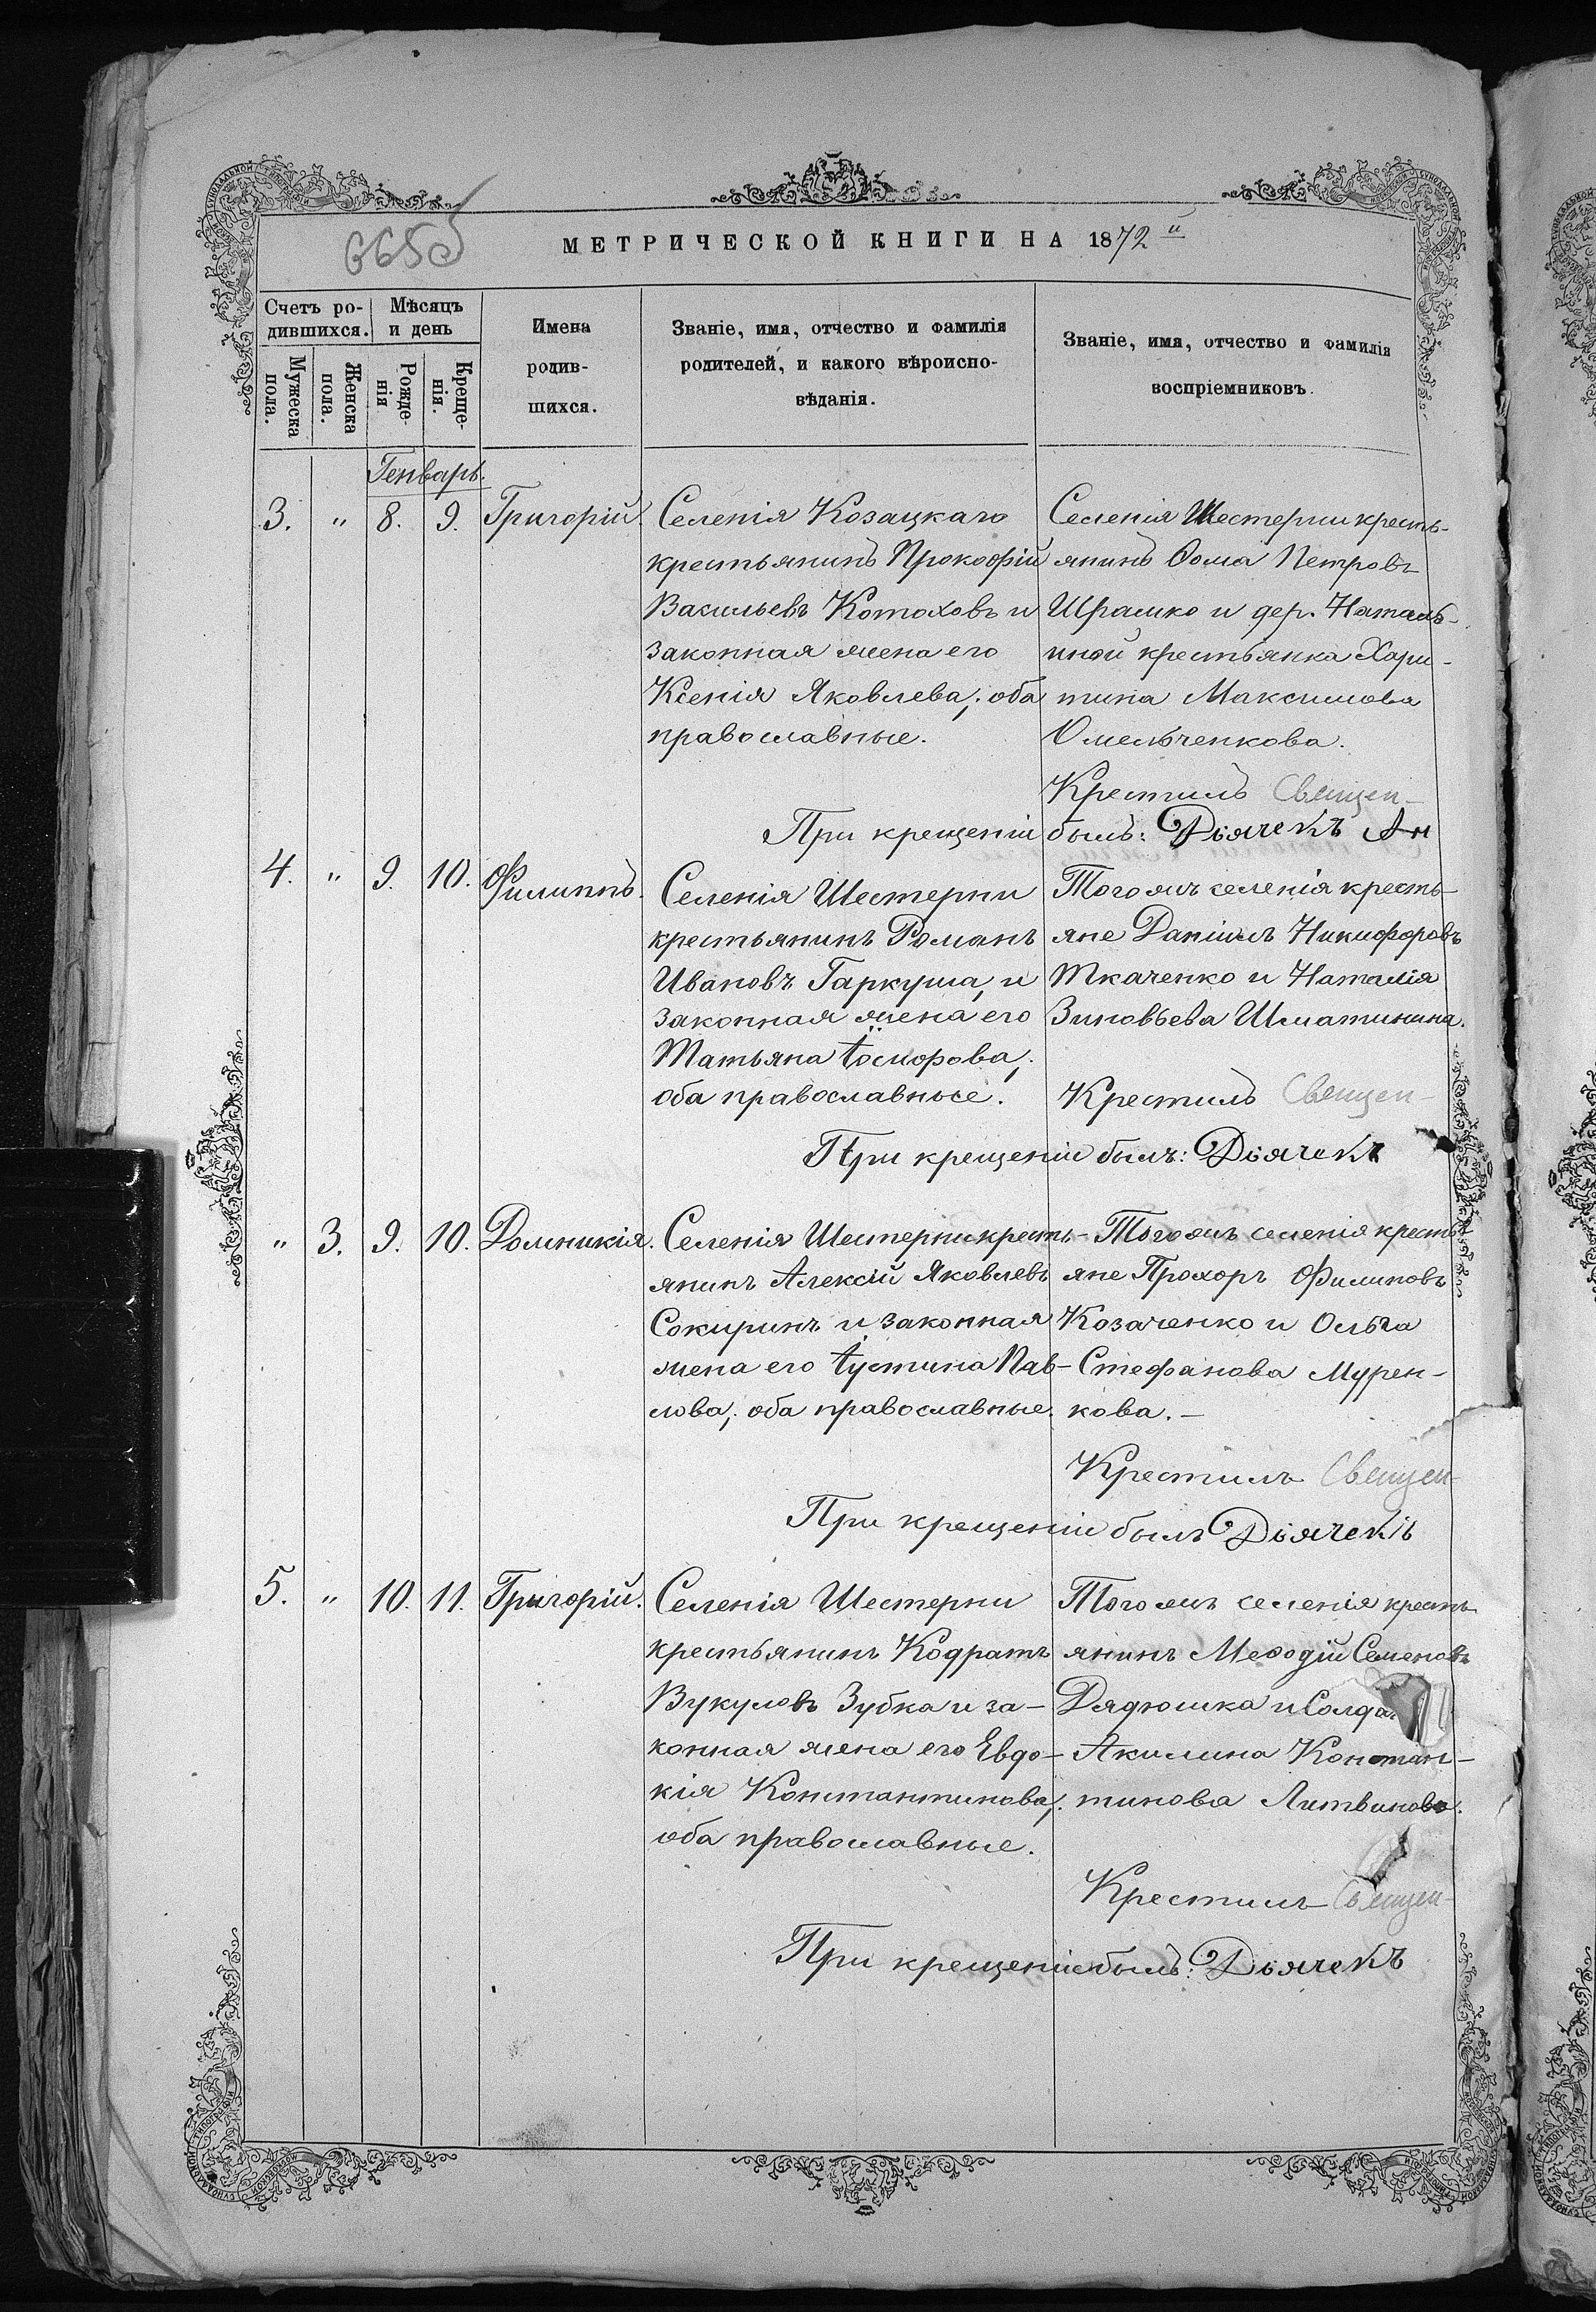 665 об
МЕТРИЧЕСКОЙ КНИГИ НА 1872й
Счетъ ро-
дившихся.
Мѣсяцъ
и день
Имена
родив-
шихся.
Званіе, имя, отчество и фамилія
родителей, и какого вѣроиспо-
вѣданія.
Званіе, имя, отчество и фамилія
воспріемниковъ.
Мужеска
пола.
Женска
пола.
Рожде-
нія
Креще-
нія.
Генварь.
3. " 8. 9. Григорій.
Селенія Козацкаго
крестьянинъ Прокофій
Васильевъ Котоховъ и
законная жена его
Ксенія Яковлева; оба
православные.
Селенія Шестерни кресть-
янинъ Ѳома Петровъ
Шрамко и дер. Наталь-
иной крестьянка Хари-
тина Максимова
Омельченкова.
Крестилъ Священ-
При крещеніи былъ: Дьячекъ Ан
4. " 9. 10. Филиппъ.
Селенія Шестерни
крестьянинъ Романъ
Ивановъ Гаркуша, и
законная жена его
Татьяна
оба православные.
Того же селенія кресть-
яне Даніилъ Никифоровъ
Ткаченко и Наталія
Зиновьева Шматинина.
Крестилъ Священ-
При крещеніи былъ: Дьячекъ
" 3. 9. 10. Домникія.
Селенія Шестерни кресть-
янинъ Алексій Яковлевъ
Сокиринъ и законная
жена его Іустина Пав-
лова; оба православные.
Того же селенія кресть
яне Прохоръ Филиповъ
Козаченко и Ольга
Стефанова Мурен-
кова.-
Крестилъ Священ-
При крещеніи былъ Дьячекъ
5. " 10. 11. Григорій.
Селенія Шестерни
крестьянинъ Кодратъ
Вукуловъ Зубка и за-
конная жена его Евдо-
кія Константинова;
оба православные.
Того же селенія кресть
янинъ Меѳодій Семеновъ
Дядюшка и Солда
Акилина Констан-
тинова Литвинова.
Крестилъ Священ-
При крещеніи былъ: Дьячекъ